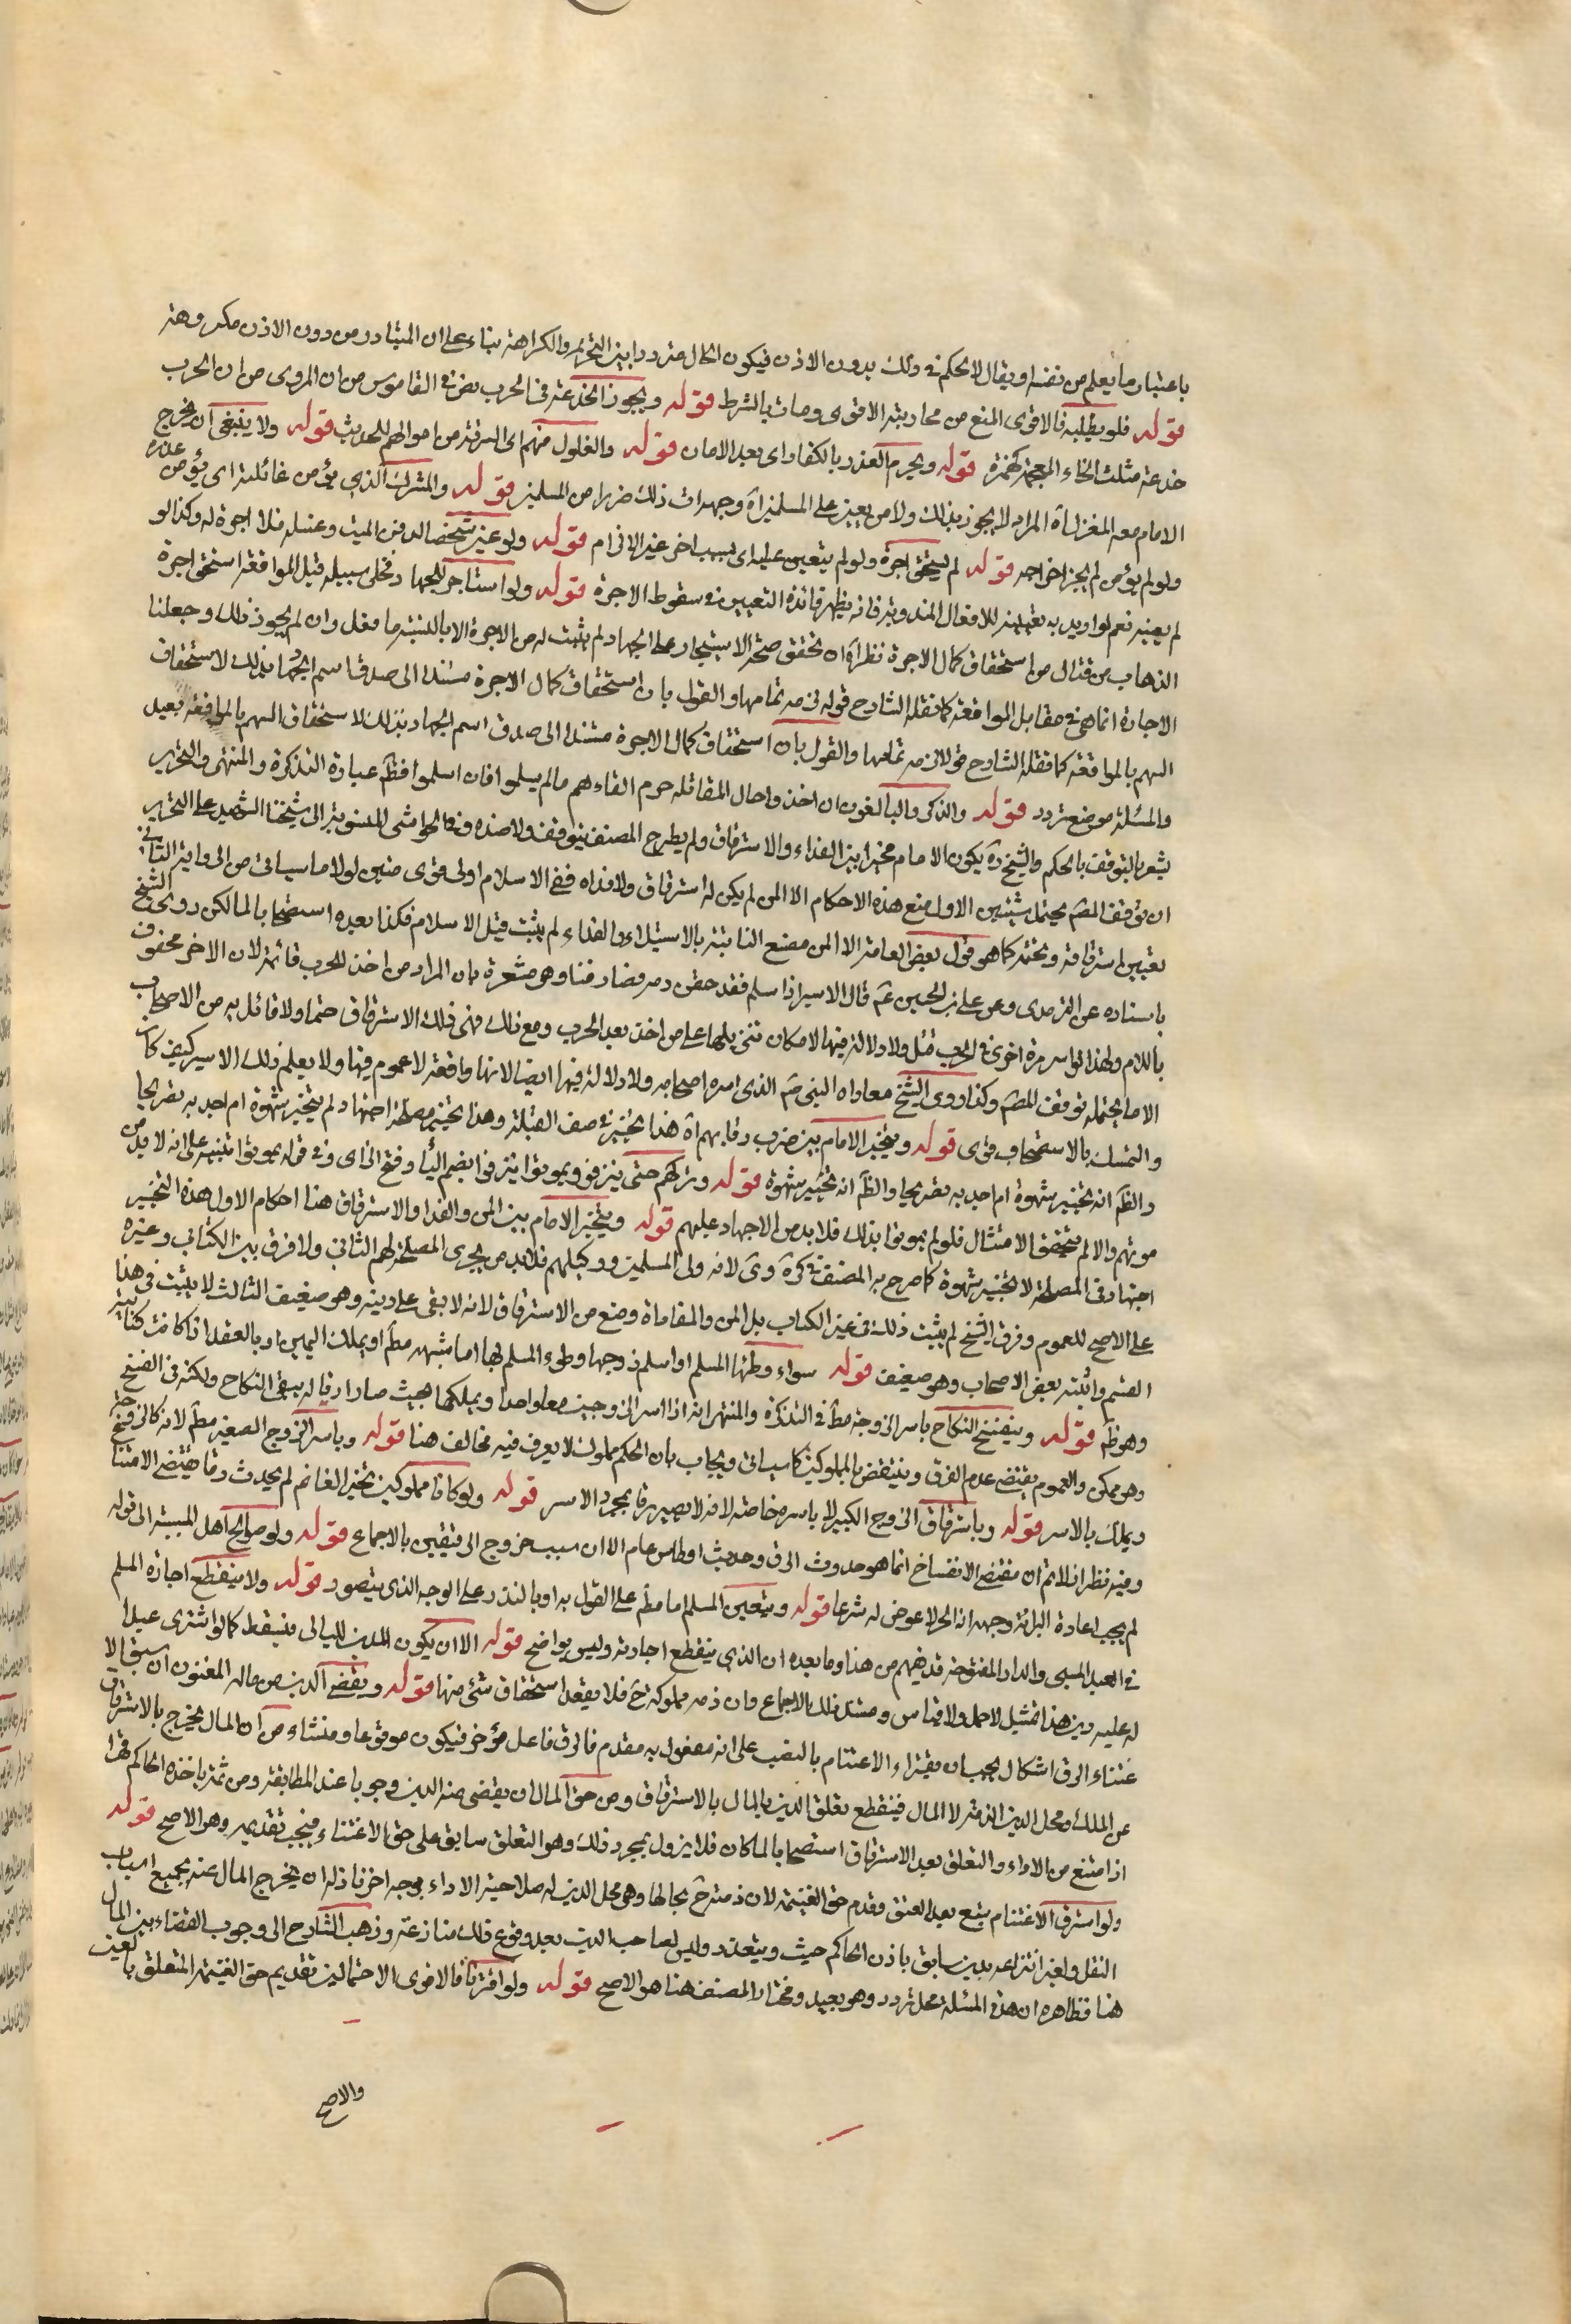 باعتبار ما يعلم من نفسه او يقال لا لحكم في ذلك بدون الاذن فيكون الحال مترددا بين التحريم والكراهة بناء على ان المتبادر من دون الاذن مكروهة
قوله فلو يطلبه فالاقوى المنع من محاربته الاقوى ومات بالشرط قوله ويجوز الخدعة في الحرب نص في القاموس من ان المروى من ان الحرب
خدعة مثلث الخاء المعجمة كهمزة قوله ويحرم الغدر بالكفار اى بعد الامان قوله والغلول منهم اى السرقة من اموالهم للحديث قوله ولا ينبغي ان يخرج
الامام معه المغزل اه المراد لا يجوز بذلك ولا من يعين على المسلمين اه وجهه ان ذلك ضررا من المسلمين قوله والمشرك الذي يؤمن غائلته اى يؤمن غدره
ولو لم يؤمن لم يجز اخراجه قوله لم يستحق اجرة ولو لم يتعين عليه اى بسبب اخر غير الالزام قوله ولو عين شخصا لدفن الميت وغسله فلا اجرة له وكذا لو
لم يعينه نعم لو اريد به تعيينه للافعال المندوبة فانه يظهر فائدة التعيين في سقوط الاجرة قوله ولو استاجر للجهاد فخلى سبيله قبل الموافقة استحق اجرة
الذهاب من قتال من استحقاق كمال الاجرة نظر اه ان تحقق صحة الاستيجار على الجهاد لم يثبت له من الاجرة الا بالنسبة ما فعل وان لم يجوز ذلك وجعلنا
الاجارة انما هي في مقابل الموافقة كما نقله الشارح قوله في مه تمامها والقول بان استحقاق كمال الاجرة مستندا الى صدق اسم الجهاد بذلك لاستحقاق
السهم بالموافقة كما نقله الشارح قولا في مه تمامها والقول بان استحقاق كمال الاجرة مستندا الى صدق اسم الجهاد بذلك لاستحقاق السهم بالموافقة بعيد
والمسئلة موضع تردد قوله والذكور البالغون ان اخذوا حال المقاتلة حرم القاءهم ما لم يسلموا فان اسلموا فظ عبارة التذكرة والمنتهى والتحرير
يشعر بالتوقف بالحكم والشيخ ره يكون الامام مخيرا بين الفداء والاسترقاق ولم يطرح المصنف بتوقف ولا ضده في الحواشي المنسوبة الى شيخنا الشهيد على التحرير
ان توقف المصم يحتمل شيئين الاول منع هذه الاحكام الا المن لم يكن له استرقاق ولا فداه ففي الاسلام اولى قوى متين لولا ما سياتي من الرواية الثاني
تعيين استرقاقه وتحتمه كما هو قول بعض العامة الا المن ممتنع الثابتة بالاستيلاء والفداء لم يثبت قبل الاسلام فكذا بعده استصحابا لما لكن روى الشيخ
باسناده عن الزهرى وعن على بن الحسين عم قال الاسير اذا اسلم فقد حقن دمه فصار فيئا وهو مشعرة بان المراد من اخذ للحرب قائمة لان الاخر محقون
باللام ولهذا لو اسر مرة اخرى في الحرب قتل ولا دلالة فيها لامكان تنزيلها على من اخذ بعد الحرب ومع ذلك فهى ذلك الاسترقاق حتما ولا قائل به من الاصحاب
الا ما يحتمله توقف المصم وكذا روى الشيخ مفاداه النبي صم الذى اسره اصحابه ولا دلالة فيها ايضا لانها واقعة لا عموم فيها ولا يعلم ذلك الاسير كيف كان
والتمسك بالاستصحاب قوى قوله ويتخير الامام بين ضرب رقابهم اه هذا تخيير في صف القبلة وهذا تخيير مصلحة اجتهاد لم يتخير شهوة ام اجد به تصريحا
والظم انه تخيير شهوة ام اجد به تصريحا والظم انه تخيير شهوة قوله وتركهم حتى ينزفوا ويموتوا ينزفوا بضم الياء وفتح الزاى وفي قوله يموتوا تنبيه على انه لا بد من
موتهم والا لم يتحقق الامتثال فلو لم يموتوا بذلك فلا بد من الاجهاد عليهم قوله ويتخير الامام بين المن والفداء والاسترقاق هذا احكام الاول هذه التخيير
اجتهاد في المصلحة لا تخيير شهوة كما صرح به المصنف في كره وى لانه ولى المسلمين ووكيلهم فلا بد من يجرى المصلحة لهم الثاني ولا فرق بين الكتابي وغيره
على الاصح للعموم وفرق الشيخ لم يثبت ذلك في غير الكتاب بل المن والمفاداة ومنع من الاسترقاق لانه لا يبقى على دينه وهو ضعيف الثالث لا يثبت في هذا
القسم واثبته بعض الاصحاب وهو ضعيف قوله سواء وطئها المسلم او اسلم زوجها وطىء المسلم لها اما بشبهه مطم او بملك اليمين او بالعقد اذا كانت كتابية
وهو ظم قوله وينفسخ النكاح باسر الزوجة مطم في التذكرة والمنتهى انه اذا اسر الزوجين معا واحدا ويملكهما بحيث صارا رقا له يبقى النكاح ولكنه في الفسخ
وهو ممكن والعموم يقتضى عدم الفرق وينتقض بالمملوكين كما سياتي ويجاب بان الحكم مملوك لا يعرف فيه مخالف هنا قوله وباسر الزوج الصغير مطم لانه كالزوجة
ويملك بالاسر قوله وباسترقاق الزوج الكبير لا باسره خاصة لانه لا يصير رقا بمجرد الاسر قوله ولو كانا مملوكين تخير الغانم لم يحدث رقا يقتضى الامتناع
وفيه نظر اذ لا نم ان مقتضى الانفساخ انما هو حدوث الرق وحديث اوطاس عام الا ان سبب خروج الرقيقين بالاجماع قوله ولو صولح اهل المسبية الى قوله
لم يجب اعادة المرائة وجهه ان الحر لا عوض له شرعا قوله ويتعين المسلم اما مطم على القول به او بالنذر على الوجه الذى يتصور قوله ولا ينقطع اجارة المسلم
في العبد المسبى والدار المفتوحة قد يفهم من هذا وما بعده ان الذمى ينقطع اجارته وليس بواضح قوله الا ان يكون الدين للسابى فيسقط كما لو اشترى عبدا
له عليه دين هذا تمثيل لاصل ولا قياس ومستند ذلك الاجماع وان ذمه مملوكة خ فلا يعقد استحقاق شئ منها قوله ويقضى الدين من ماله المغنوم ان سبق الاغتنام
عتناء الرق اشكال يجب ان يقراء الاغتنام بالنصب على انه مفعول به مقدم فالرق فاعل مؤخر فيكون مرفوعا ومنشاء من ان المال يخرج بالاسترقاق
عن الملك ومحل الدين الذمة لا المال فينقطع تعلق الدين بالمال بالاسترقاق ومن حق المال ان يقضى منه الدين وجوبا عند المطالبة ومن ثمة ياخذه الحاكم قهرا
اذا متنع من الاداء والتعلق بعد الاسترقاق استصحابا لما كان فلا يزول بمجرد ذلك وهو التعلق سابق على حق الاغتناء فيجب تقديمه وهو الاصح قوله
ولو استرق الاغتنام يتبع بعد العتق وقدم حق الغنيمة لان ذمته خ بحالها وهى محل الدين له صلاحية الاداء بوجه اخر فاذا له ان يخرج المال عنه بجميع اسباب
النقل ولغيره انتزاعه بدين سابق باذن الحاكم حيث ويتعذر وليس لصاحب الدين بعد وقوع ذلك منازعته وذهب الشارح الى وجوب القضاء بين المال
هنا فظاهره ان هذه المسئلة محل تردد وهو بعيد ومختار المصنف هنا هو الاصح قوله ولو اقترنا فالاقوى الاحتمالين تقديم حق الغنيمة المتعلق بالعين
والاصح